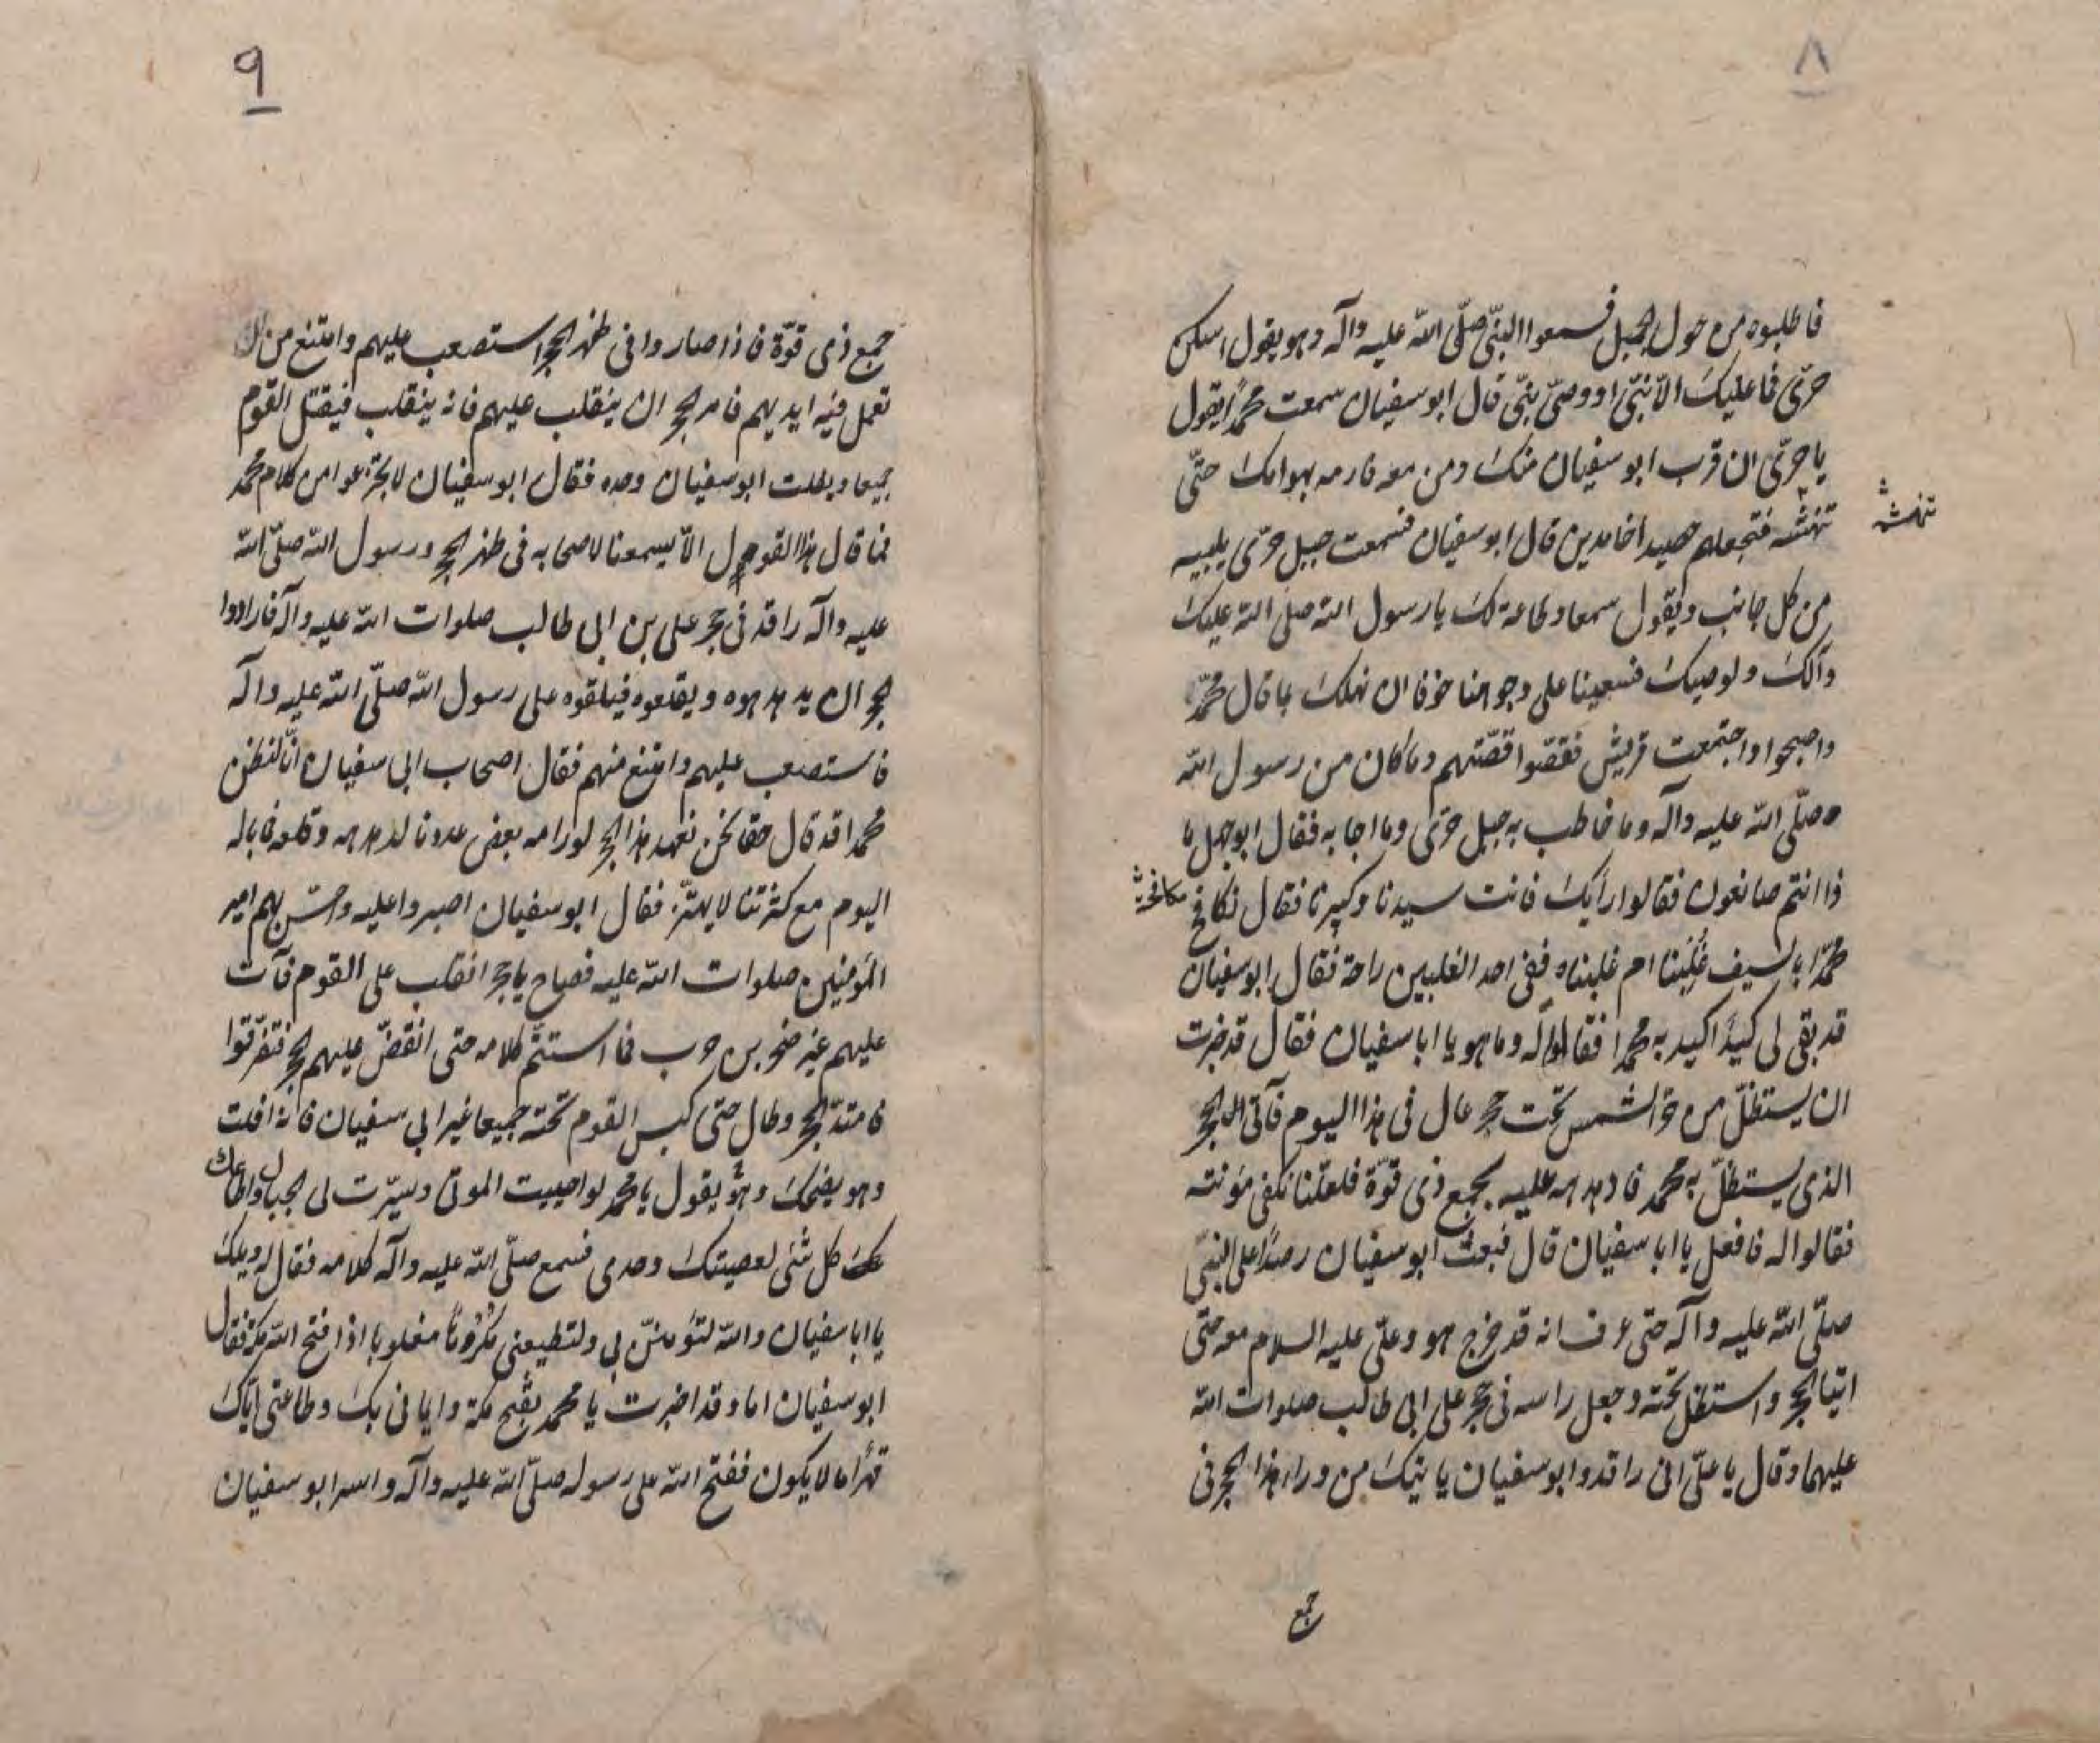 ٨
فاطلبوه من حول الجبل فسمعوا النبّي صلّى الله عليه وآله وهو يقول اسكن
حرّى فما عليك الّا نبّي او وصيّ نبّي قال ابو سفيان سمعت محمّدا يقول
يا حرّى ان قرب ابو سفيان منك ومن معه فارمه بهوامك حتّى
تنهشه فتجعلهم حصيدا خامدين قال ابو سفيان فسمعت جبل حرّى يلبيه
تنهشه
من كل جانب ويقول سمعا وطاعة لك يا رسول الله صلى الله عليك
وآلك ولوصيك فسعينا على وجوهنا خوفا ان نهلك بما قال محمّد
واصبحوا واجتمعت قريش فقصّوا قصّتهم وما كان من رسول الله
صلّى الله عليه وآله وما خاطب به جبل حرّى وما اجابه فقال ابو جهل ما
ذا انتم صانعون فقالوا رأيك فانت سيدنا وكبيرنا فقال نكافح
مكافحة
محمّدا بالسيف غُلِبنا ام غلبناه ففى احد الغلبين راحة فقال ابو سفيان
قد بقى لى كيدًا اكيد به محمدا فقالوا له وما هو يا ابا سفيان فقال قد خبرت
ان يستظلّ من حرّ الشمس تحت حجر عال فى هذا اليوم فآتى الى الحجر
الذى يستظلّ به محمد فادهدهه عليه بجمع ذى قوّة فلعلّنا نكفى مؤنته
فقالوا له فافعل يا ابا سفيان قال فبعث ابو سفيان رصدًا على النبّي
صلّى الله عليه وآله حتى عرف انه قد خرج هو وعليّ عليه السلام معه حتّى
اتيا الحجر واستظل تحته وجعل راسه فى حجر على ابى طالب صلوات الله
عليهما وقال يا عليّ انى راقد وابو سفيان ياتيك من وراء هذا الحجر فى
جمع
٩
جمع ذى قوّة فاذا صاروا فى ظهر الحجر استصعب عليهم وامتنع من ان
تعمل فيه ايديهم فامر الحجر ان ينقلب عليهم فانه ينقلب فيقتل القوم
جميعا ويفلت ابو سفيان وحده فقال ابو سفيان لا تجزعوا من كلام محمد
فما قال هذا القول الّا ليسمعنا لاصحابه فى ظهر الحجر ورسول الله صلّى الله
عليه وآله راقد فى حجر على بن ابى طالب صلوات الله عليه وآله فارادوا
الحجر ان يدهدهوه ويقلعوه فيلقوه على رسول الله صلّى الله عليه وآله
فاستصعب عليهم وامتنع منهم فقال اصحاب ابى سفيان انّا لنظن
محمدا قد قال حقا نحن نعهد هذا الحجر لو رامه بعض عددنا لدهدهه وقلعه فما باله
اليوم مع كثرتنا لا يهتزّ فقال ابو سفيان اصبروا عليه وحسّ بهم امير
المؤمنين صلوات الله عليه فصاح يا حجر انقلب على القوم فآت
عليهم غير صخر بن حرب فما استتمّ كلامه حتى انقضّ عليهم الحجر فتفرّقوا
فامتدّ الحجر وطال حتى كبس القوم تحته جميعا غير ابى سفيان فانه افلت
وهو يضحك وهو يقول يا محمد لو احييت الموتى وسيّرت لى الجبال واطاعك
كل شئ لعصيتك وحدى فسمع صلّى الله عليه وآله كلامه فقال له ويلك
يا ابا سفيان والله لتؤمننّ بى ولتطيعنى مكرُوهًا مغلوبا اذا فتح الله مكّة فقال
ابو سفيان اما وقد اخبرت يا محمد بفتح مكة وايمانى بك وطاعتى ايّاك
قهرًا ما لا يكون ففتح الله على رسوله صلّى الله عليه وآله واسر ابو سفيان